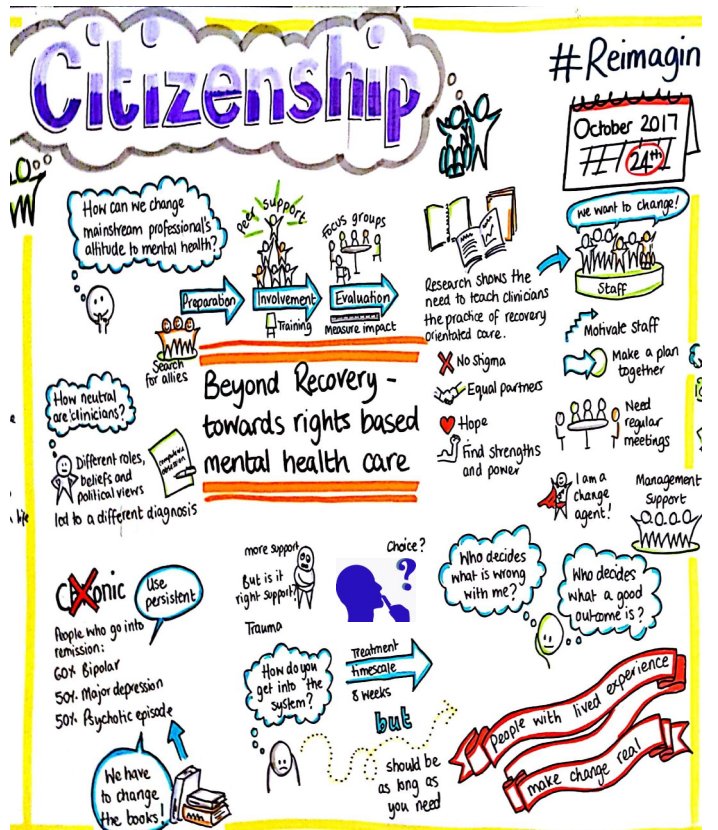 Citizenship
#Reimagin
October 2017
24th
How can we change
mainstream professional's
attitude to mental health?
Peer support
Focus groups
Preparation
Involvement
Evaluation
Training
Measure impact
Search
for allies
Research shows the
need to teach clinicians
the practice of recovery
orientated care.
No Stigma
Equal partners
Hope
Find strengths
and power
we want to change!
Staff
Motivate staff
Make a plan
together
Need
regular
meetings
I am a
change
agent!
Management
Support
Beyond Recovery -
towards rights based
mental health care
How neutral
are 'clinicians?
Different roles,
beliefs and
political views
led to a different diagnosis
Chronic
Use
persistent
People who go into
remission:
60% Bipolar
50% Major depression
50% Psychotic episode
We have
to change
the books!
more support
But is it
right support?
Choice?
?
Trauma
How do you
get into the
system?
Treatment
timescale
8 weeks
but
should be
as long as
you need
Who decides
what is wrong
with me?
Who decides
what a good
outcome is?
people with lived experience
make change real